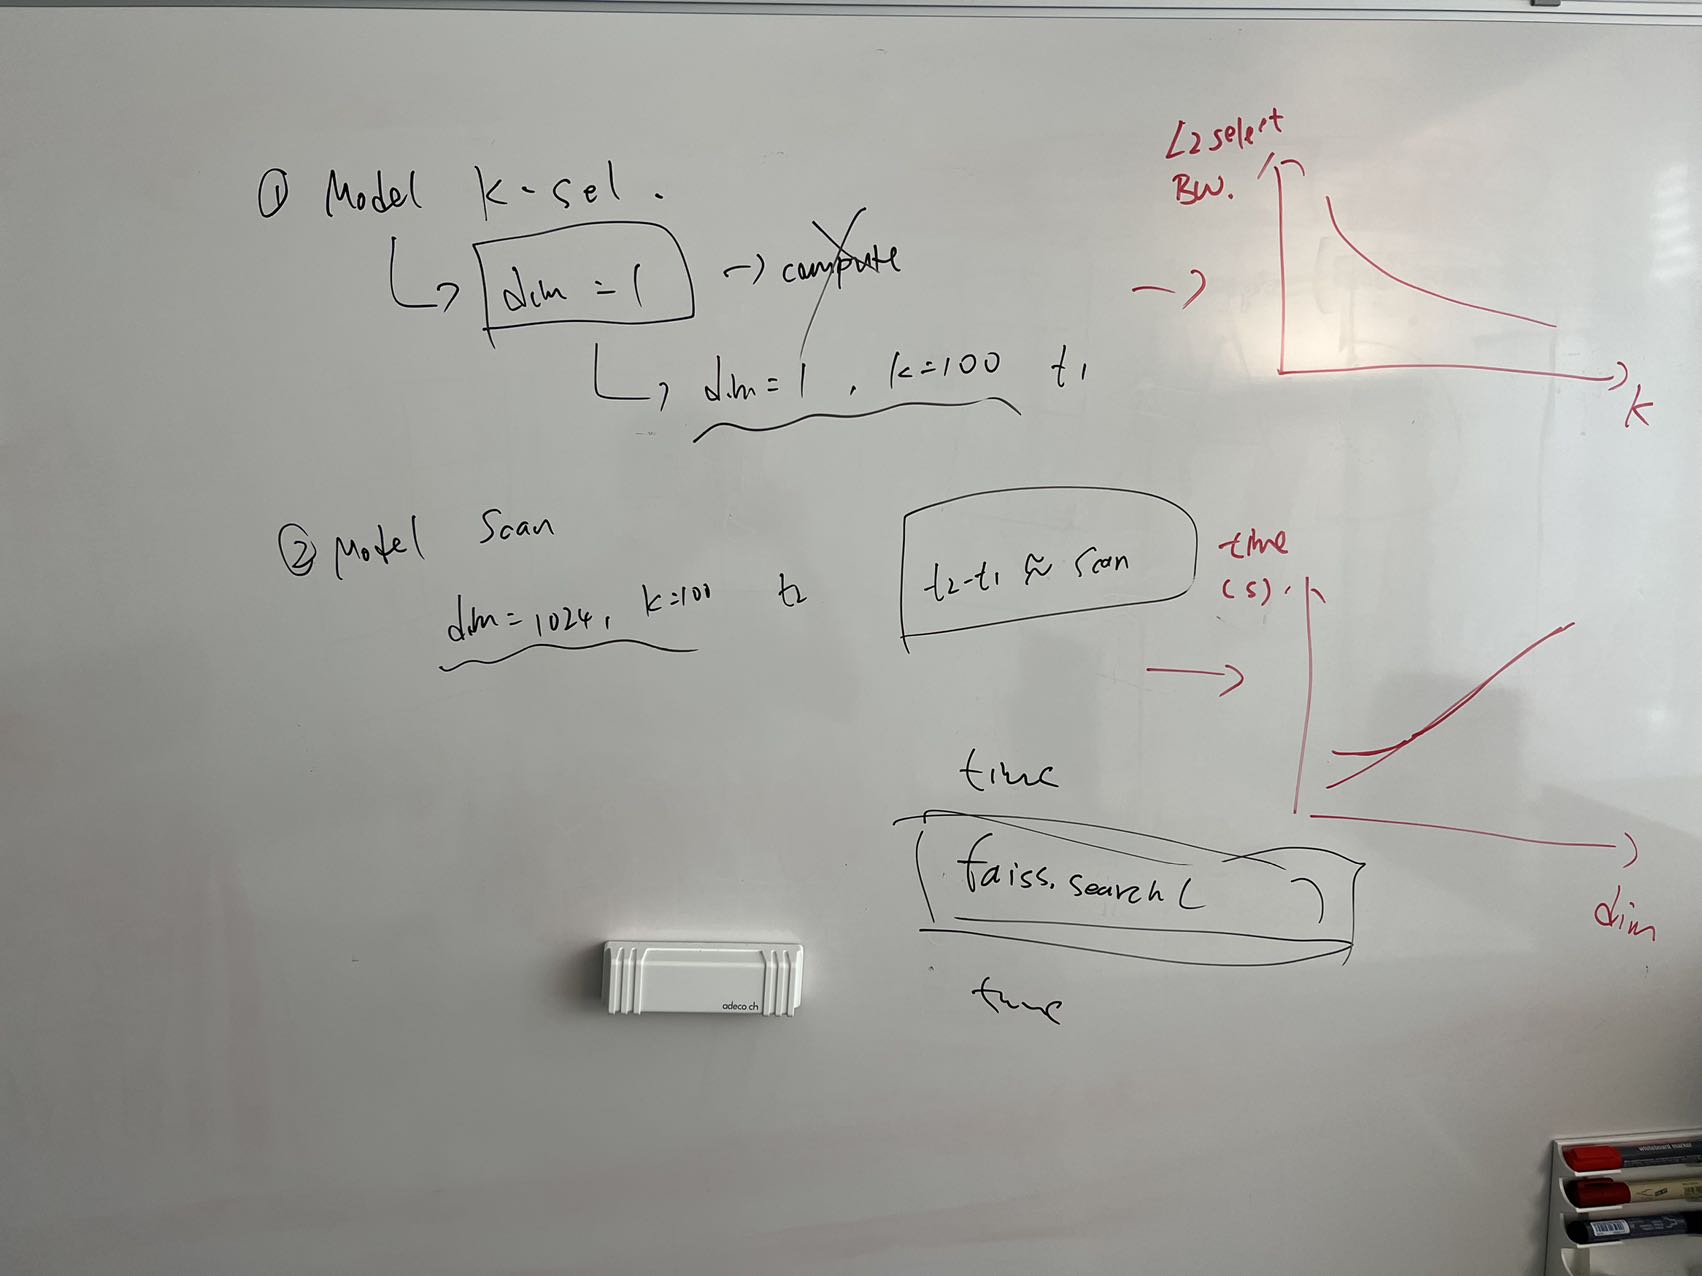 ① Model k-sel.
dim = 1 → compute
dim = 1, k=100 t1
L2 select
BW.
k
② Model Scan
dim = 1024, k=100 t2
t2-t1 ≈ scan
time
(s).
dim
time
faiss.search( )
time
adeco.ch
whiteboard marker